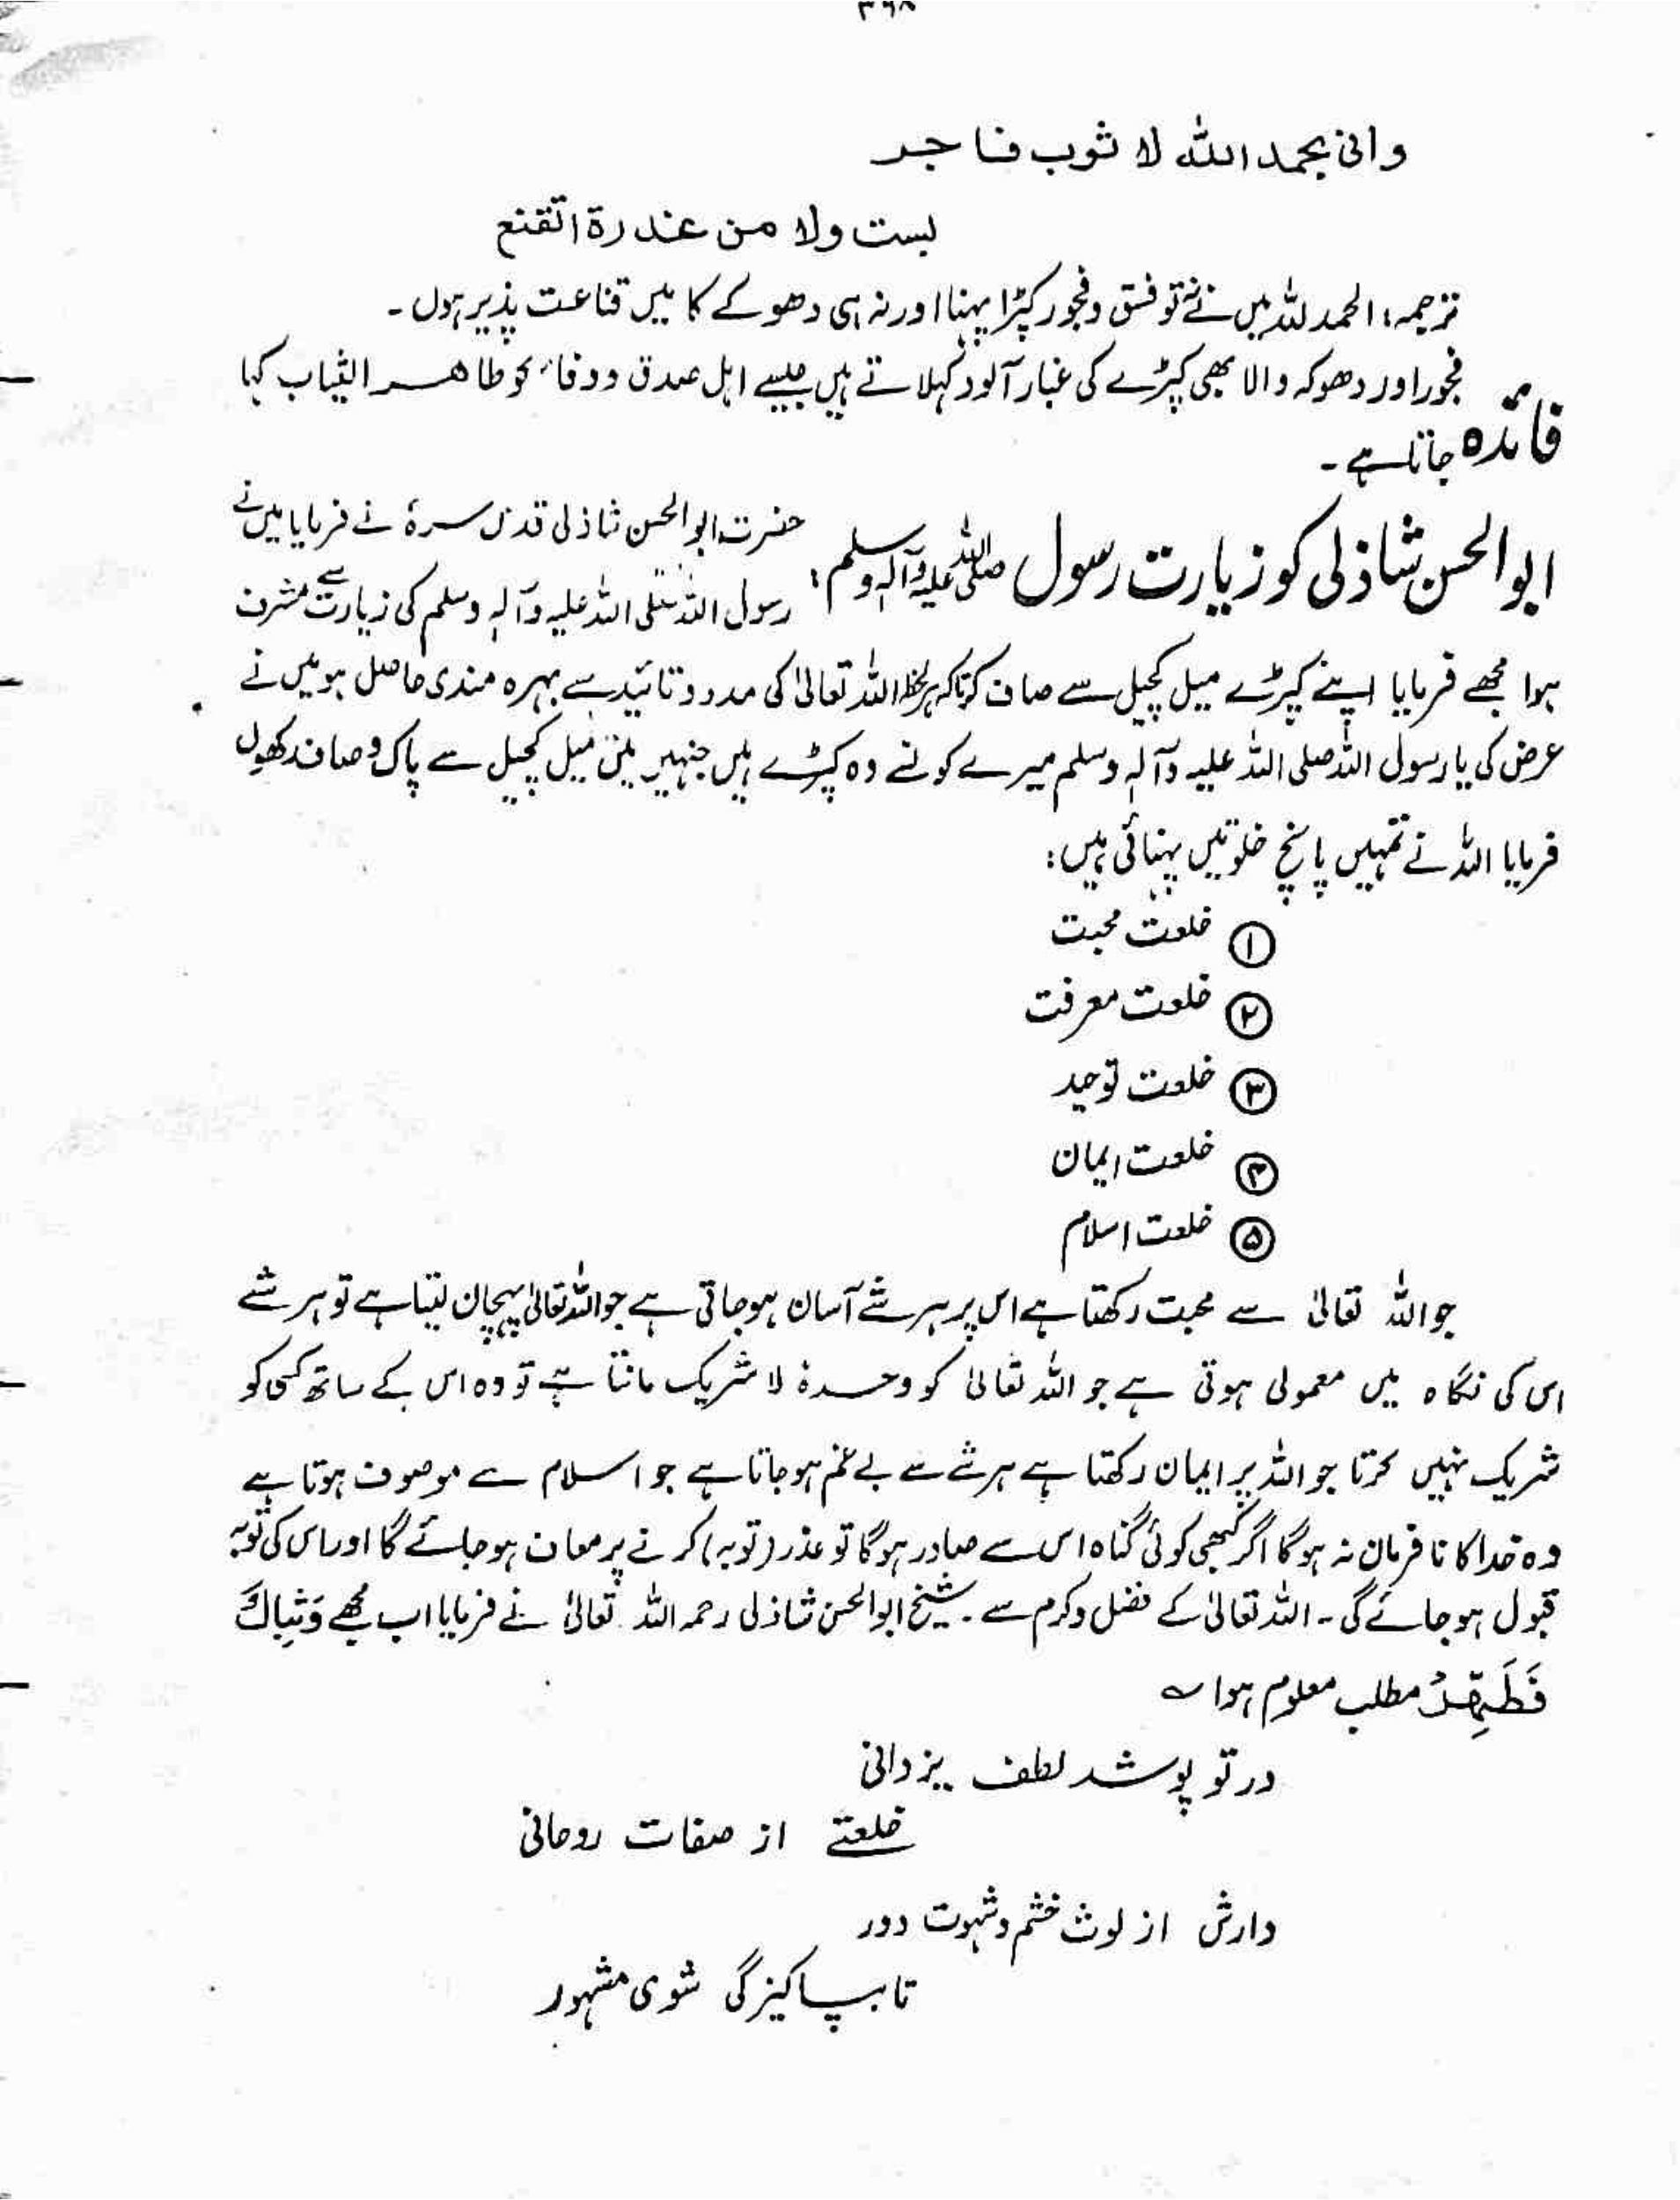 وانی بحمد اللہ لا ثوب فاجر
لبست ولا من غدرة اتقنع
ترجمہ: الحمد للہ میں نے نہ تو فسق و فجور کپڑا پہنا اور نہ ہی دھوکے کا میں قناعت پذیر ہوں ۔
فجور اور دھوکہ والا بھی کپڑے کی غبار آلود کہلاتے ہیں جیسے اہل صدق و وفاء کو طاھر الثیاب کہا
فائدہ جاتا ہے ۔
ابوالحسن شاذلی کو زیارت رسول صلی اللہ علیہ وآلہ وسلم : حضرت ابوالحسن شاذلی قدس سرہٗ نے فرمایا میں نے
رسول اللہ صلی اللہ علیہ وآلہ وسلم کی زیارت سے مشرف
ہوا مجھے فرمایا اپنے کپڑے میل کچیل سے صاف کر تاکہ ہر لحظہ اللہ تعالیٰ کی مدد و تائید سے بہرہ مندی حاصل ہو میں نے
عرض کی یا رسول اللہ صلی اللہ علیہ وآلہ وسلم میرے کونسے وہ کپڑے ہیں جنہیں میں میل کچیل سے پاک و صاف رکھوں
فرمایا اللہ نے تمہیں پانچ خلوتیں پہنائی ہیں :
① خلعت محبت
② خلعت معرفت
③ خلعت توحید
④ خلعت ایمان
⑤ خلعت اسلام
جو اللہ تعالیٰ سے محبت رکھتا ہے اس پر ہر شے آسان ہو جاتی ہے جو اللہ تعالیٰ پہچان لیتا ہے تو ہر شے
اس کی نگاہ میں معمولی ہوتی ہے جو اللہ تعالیٰ کو وحدہٗ لا شریک مانتا ہے تو وہ اس کے ساتھ کسی کو
شریک نہیں کرتا جو اللہ پر ایمان رکھتا ہے ہر شے سے بے غم ہو جاتا ہے جو اسلام سے موصوف ہوتا ہے
وہ خدا کا نافرمان نہ ہوگا اگر کبھی کوئی گناہ اس سے صادر ہوگا تو عذر (توبہ) کرنے پر معاف ہو جائے گا اور اس کی توبہ
قبول ہو جائے گی ۔ اللہ تعالیٰ کے فضل و کرم سے ۔ شیخ ابوالحسن شاذلی رحمہ اللہ تعالیٰ نے فرمایا اب مجھے وَثِیَابَكَ
فَطَهِّرْ مطلب معلوم ہوا ؎
در تو پوشد لطف یزدانی
خلعتے از صفات روحانی
دارش از لوث خشم و شہوت دور
تا بپاکیزگی شوی مشہور